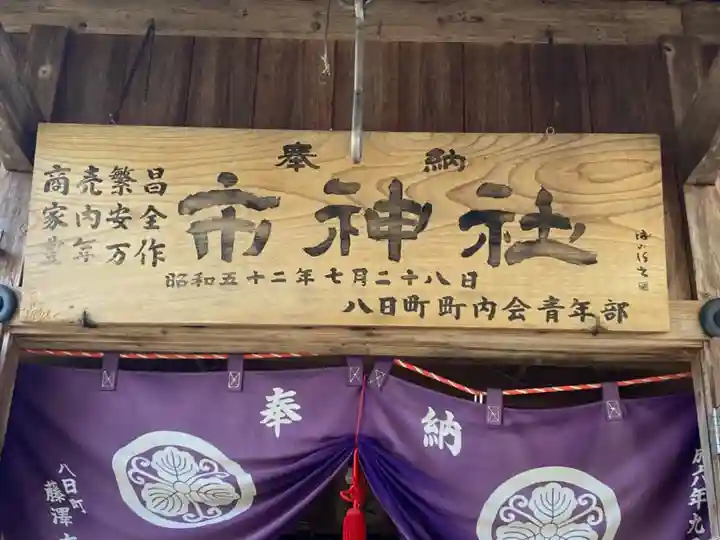 奉納
市神社
商売繁昌
家内安全
豊年万作
昭和五十二年七月二十八日
八日町町内会青年部
奉納
八日町
藤澤
六年九